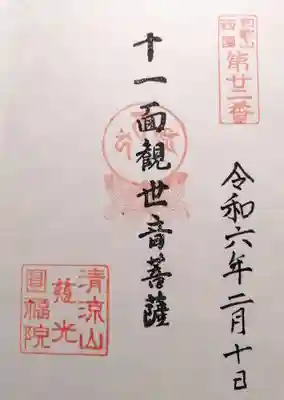 西国
第廿二番
十一面観世音菩薩
令和六年二月十日
清凉山
慈光
圓福院